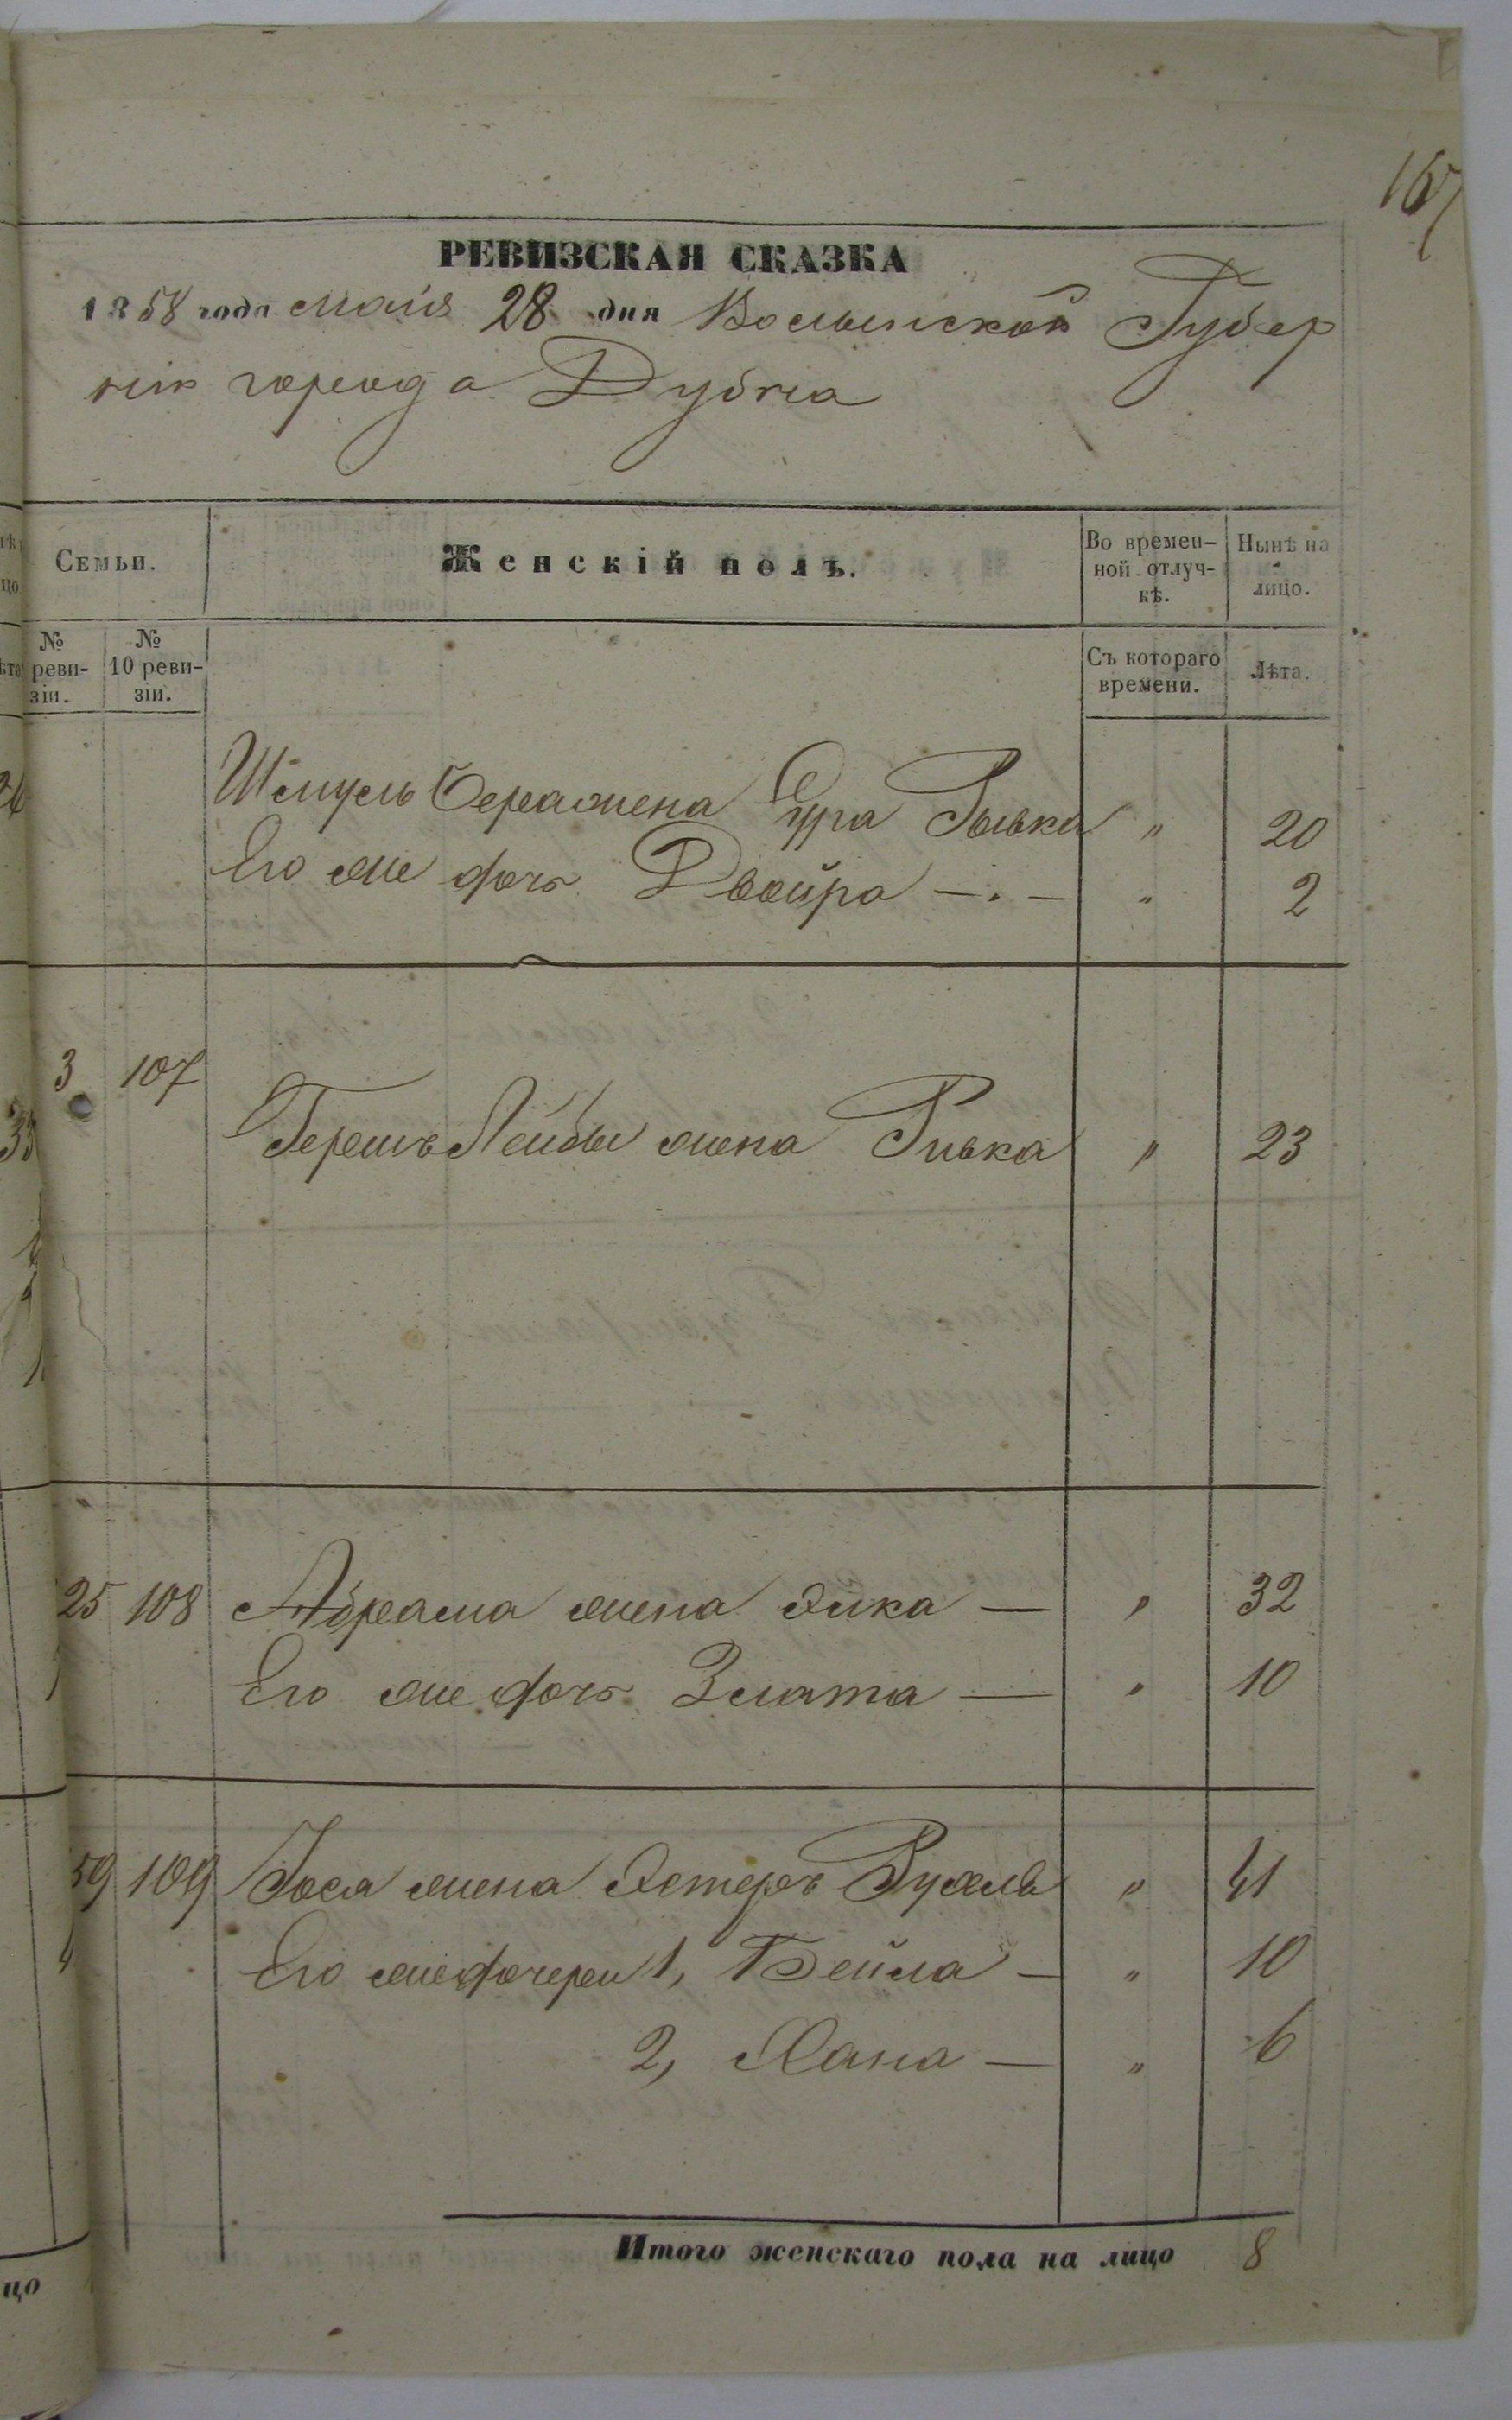 167
РЕВИЗСКАЯ СКАЗКА
1858 года Мая 28 дня Волынской Губер
ніи города Дубна
Семьи.
Женскій полъ.
Во времен-
ной отлуч-
кѣ.
Нынѣ на
лицо.
№
реви-
зіи.
№
10 реви-
зіи.
Съ котораго
времени.
Лѣта.
Шмуль Бера жена Сура Рывка " 20
Его же дочь Двойра — . — " 2
3 107
Гершъ Лейбы жена Ривка " 23
25 108 Абрама жена Эйка — " 32
Его же дочь Злата — " 10
59 109 Іося жена Эстеръ Рухль " 41
Его же дочери 1, Бейла — " 10
2, Хана — " 6
Итого женскаго пола на лицо 8
цо